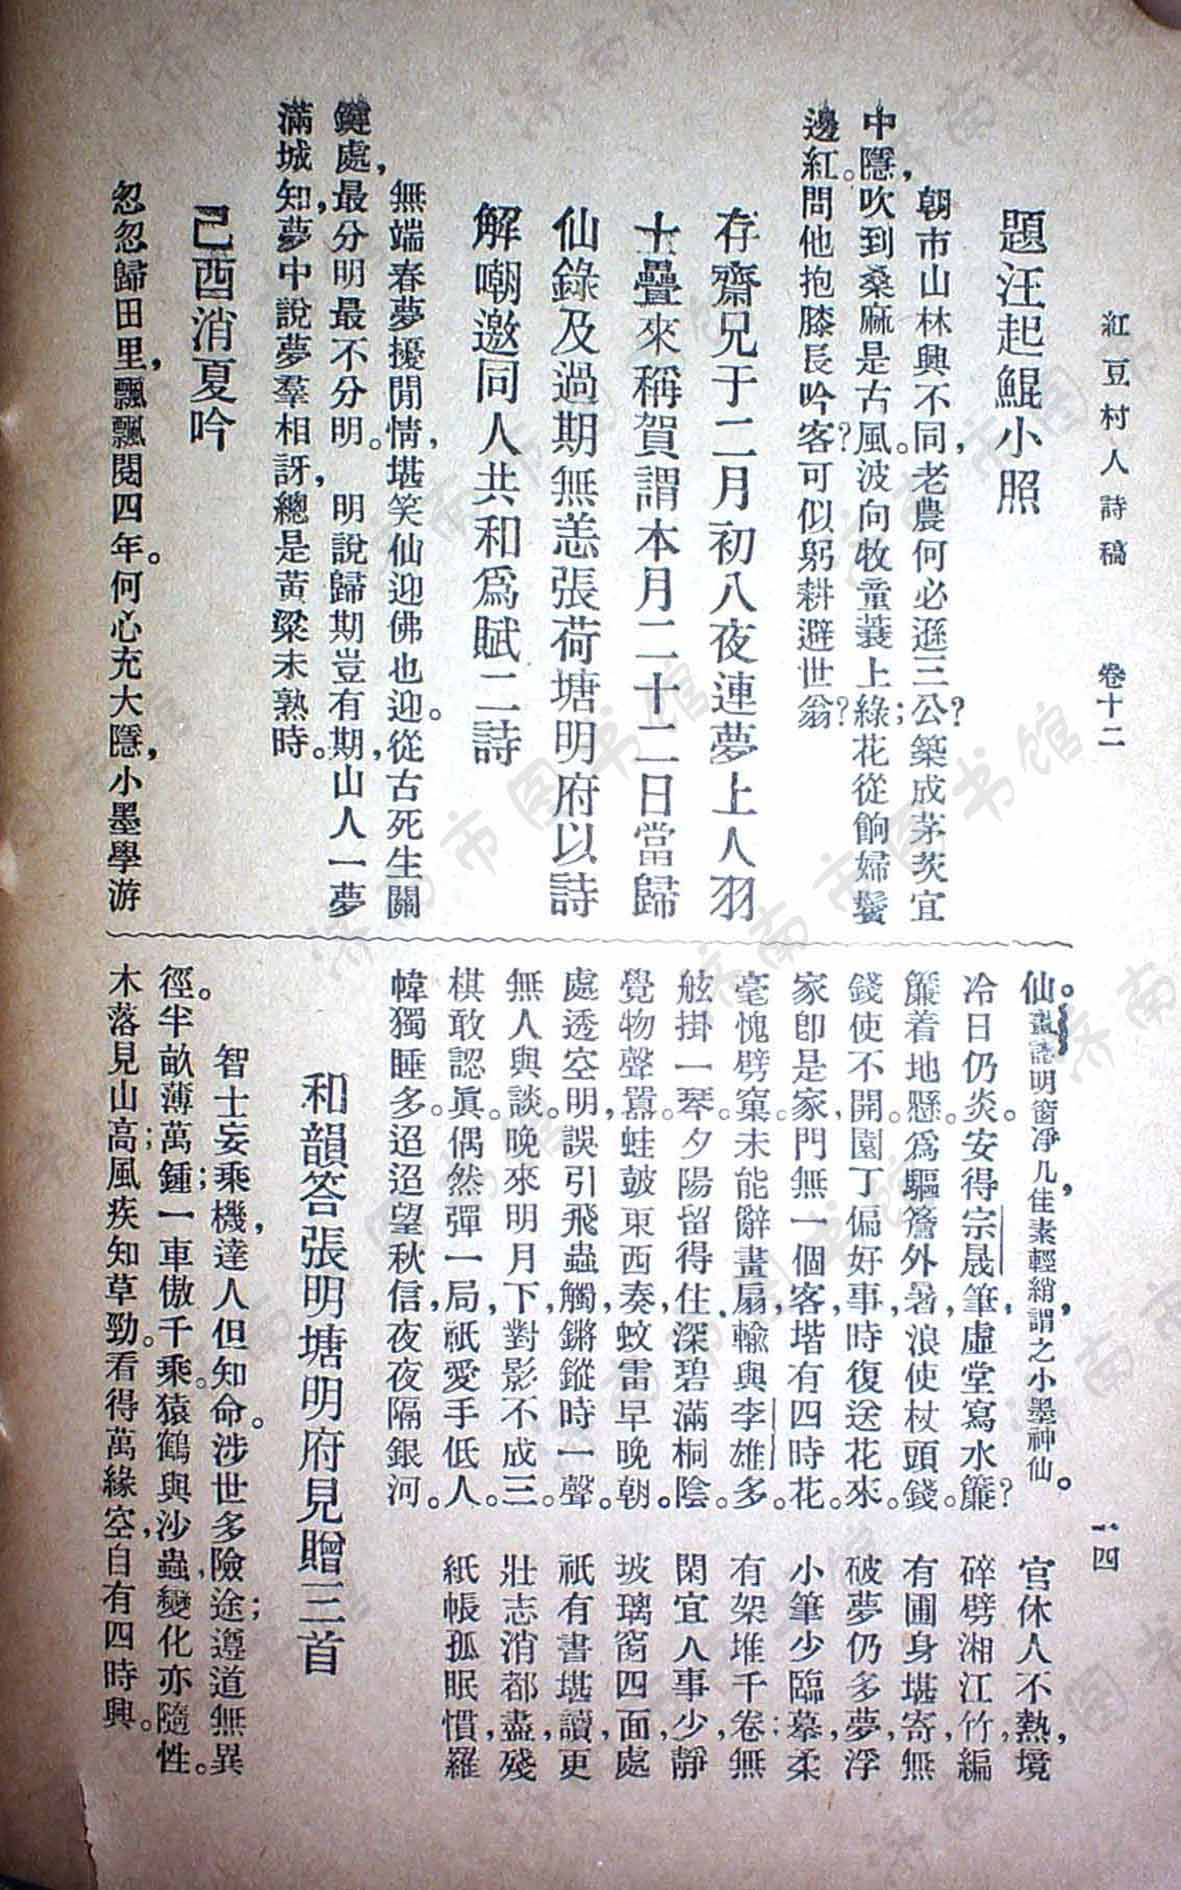 紅豆村人詩稿 卷十二 一四
題汪起鯤小照
朝市山林興不同,老農何必遜三公?築成茅茨宜
中隱,吹到桑麻是古風。波向牧童蓑上綠;花從餉婦鬢
邊紅。問他抱膝長吟客?可似躬耕避世翁?
存齋兄于二月初八夜連夢上人羽
士疊來稱賀謂本月二十二日當歸
仙錄及過期無恙張荷塘明府以詩
解嘲邀同人共和為賦二詩
無端春夢擾閒情,堪笑仙迎佛也迎。從古死生關
鍵處,最分明最不分明。 明說歸期豈有期,山人一夢
滿城知,夢中說夢羣相訝,總是黃粱未熟時。
己酉消夏吟
忽忽歸田里,飄飄閱四年。何心充大隱,小墨學游
仙。畫誌明窗淨几,佳素輕綃,謂之小墨神仙。 官休人不熱,境
冷日仍炎。安得宗晟筆,虛堂寫水簾? 碎劈湘江竹,編
簾着地懸。為驅簷外暑,浪使杖頭錢。 有圃身堪寄,無
錢使不開。園丁偏好事,時復送花來。 破夢仍多夢,浮
家卽是家。門無一個客,堦有四時花。 小筆少臨摹,柔
毫愧劈窠。未能辭畫扇,輸與李雄多。 有架堆千卷;無
舷掛一琴。夕陽留得住,深碧滿桐陰。 閑宜人事少,靜
覺物聲囂。蛙皷東西奏,蚊雷早晚朝。 玻璃窗四面,處
處透空明。誤引飛蟲觸,鏘鏦時一聲。 祇有書堪讀,更
無人與談。晚來明月下,對影不成三。 壯志消都盡,殘
棋敢認眞。偶然彈一局,祇愛手低人。 紙帳孤眠慣,羅
幃獨睡多。迢迢望秋信,夜夜隔銀河。
和韻答張明塘明府見贈三首
智士妄乘機,達人但知命。涉世多險途;遵道無異
徑。半畝薄萬鍾;一車傲千乘。猿鶴與沙蟲,變化亦隨性。
木落見山高;風疾知草勁。看得萬緣空,自有四時興。